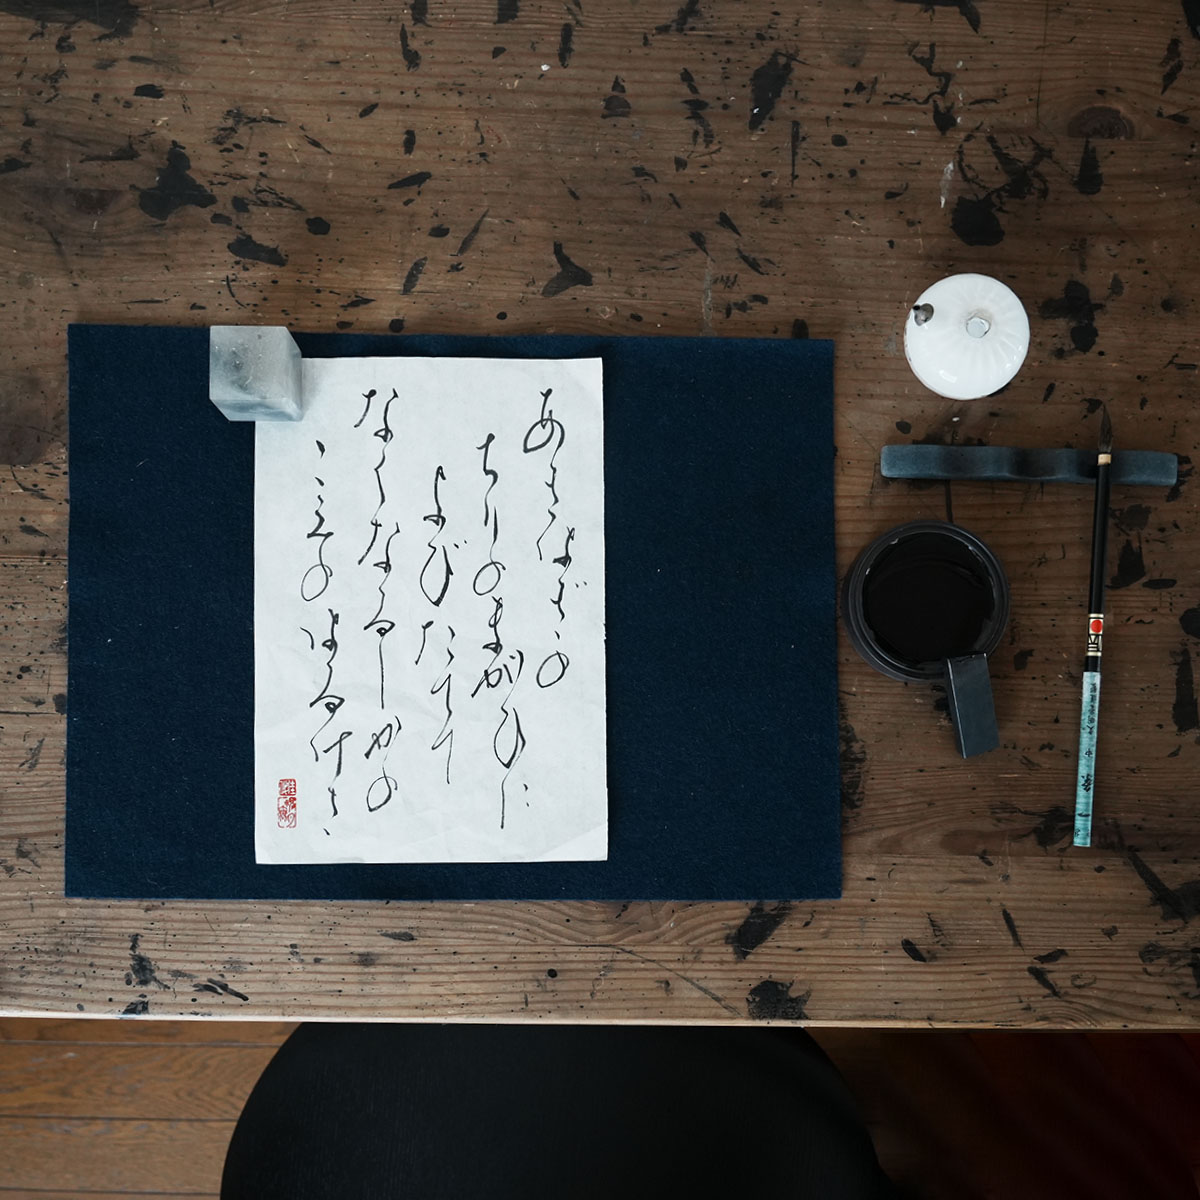 あきはぎの
ちりのまがひに
よびたてて
なくなるしかの
こゑのはるけさ